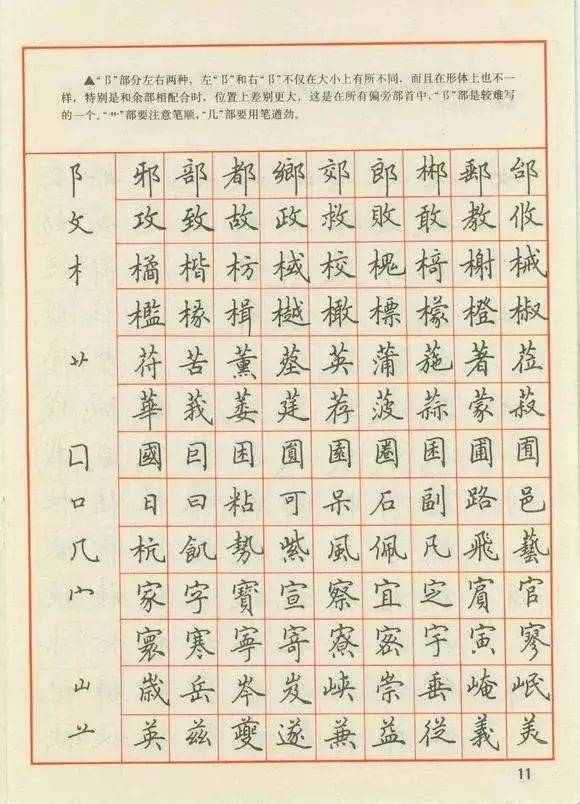 ▲“阝”部分左右两种，左“阝”和右“阝”不仅在大小上有所不同，而且在形体上也不一
样，特别是和余部相配合时，位置上差别更大，这是在所有偏旁部首中，“阝”部是较难写
的一个。“艹”部要注意笔顺，“几”部要用笔遒劲。
阝 邪 部 都 鄉 郊 郎 郴 郵 邰
攵 攻 致 故 政 救 敗 敢 教 攸
木 橘 楷 枋 棫 校 槐 椅 榭 械
檻 椽 楫 樾 橄 標 檬 橙 椒
艹 苻 苦 薰 英 蒲 葹 著 莅
華 莪 蒌 莛 荐 菠 蒜 蒙 菽
囗 國 囙 困 圓 園 圈 囷 圃 囿
口 日 曰 粘 可 呆 石 副 路 邑
几 杭 飢 勢 紫 風 佩 凡 飛 藝
宀 家 字 寶 宣 察 宜 定 賓 官
寰 寒 寧 寄 寮 密 宇 寅 寥
山 歲 岳 岑 岌 峽 崇 垂 崦 岷
䒑 英 兹 夔 遂 兼 益 從 義 美
11